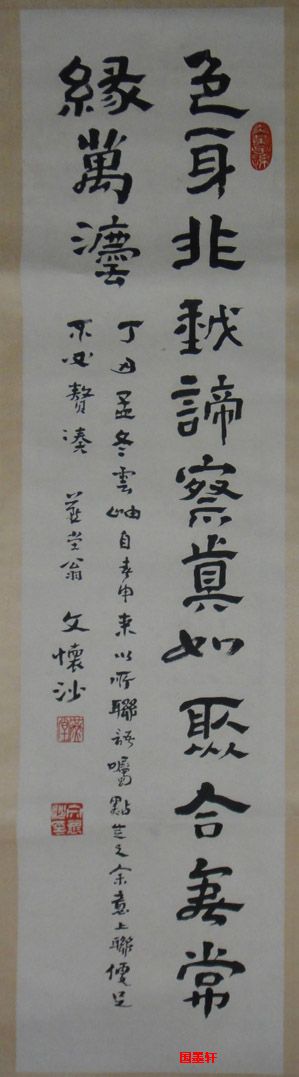 色身非我諦察眞如聚合無常
緣萬灋
丁丑孟冬雲岫自春申来以所聯語囑點定之余意上聯便足
不必贅湊 燕堂翁 文懷沙
国墨轩